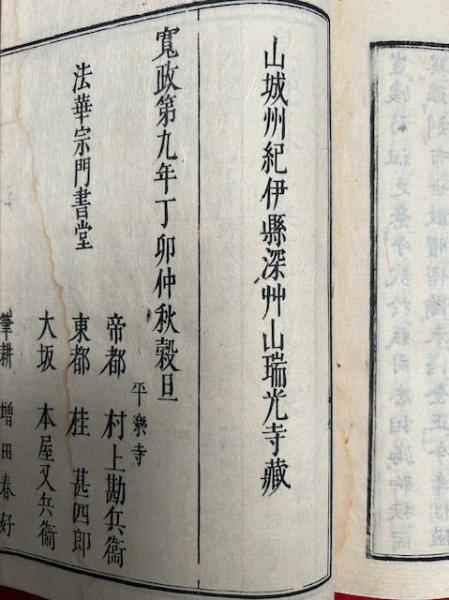 山城州紀伊縣深艸山瑞光寺藏
寬政第九年丁卯仲秋穀旦
法華宗門書堂
平樂寺
帝都 村上勘兵衞
東都 桂 甚四郎
大坂 本屋又兵衞
筆耕 增田春好